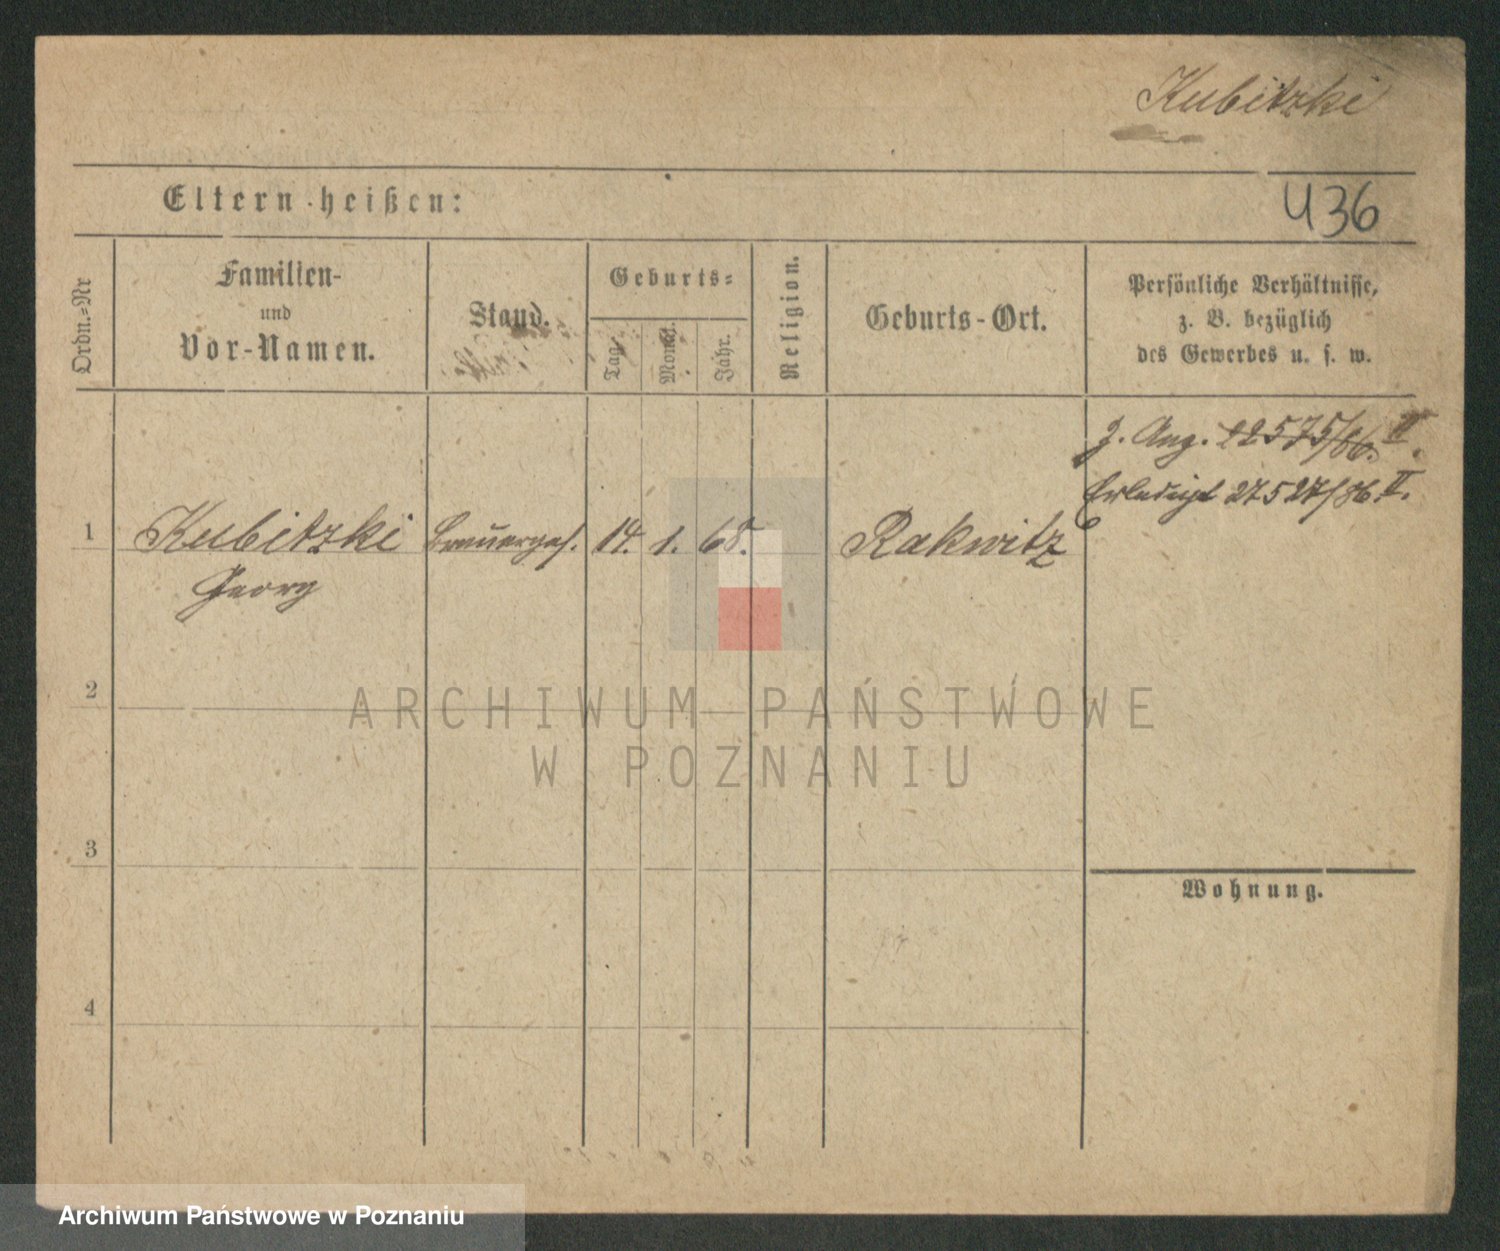 Kubitzki
Eltern heißen:
436
Ordn.=Nr
Familien-
und
Vor-Namen.
Stand.
Geburts=
Tag.
Monat.
Jahr.
Religion.
Geburts-Ort.
Persönliche Verhältnisse,
z. B. bezüglich
des Gewerbes u. s. w.
J. Ang. 22575/86. II.
Erledigt 27527/86 II.
1
Kubitzki
Brauerges.
14.
1.
68.
Rakwitz
Georg
2
ARCHIWUM PAŃSTWOWE
W POZNANIU
3
Wohnung.
4
Archiwum Państwowe w Poznaniu